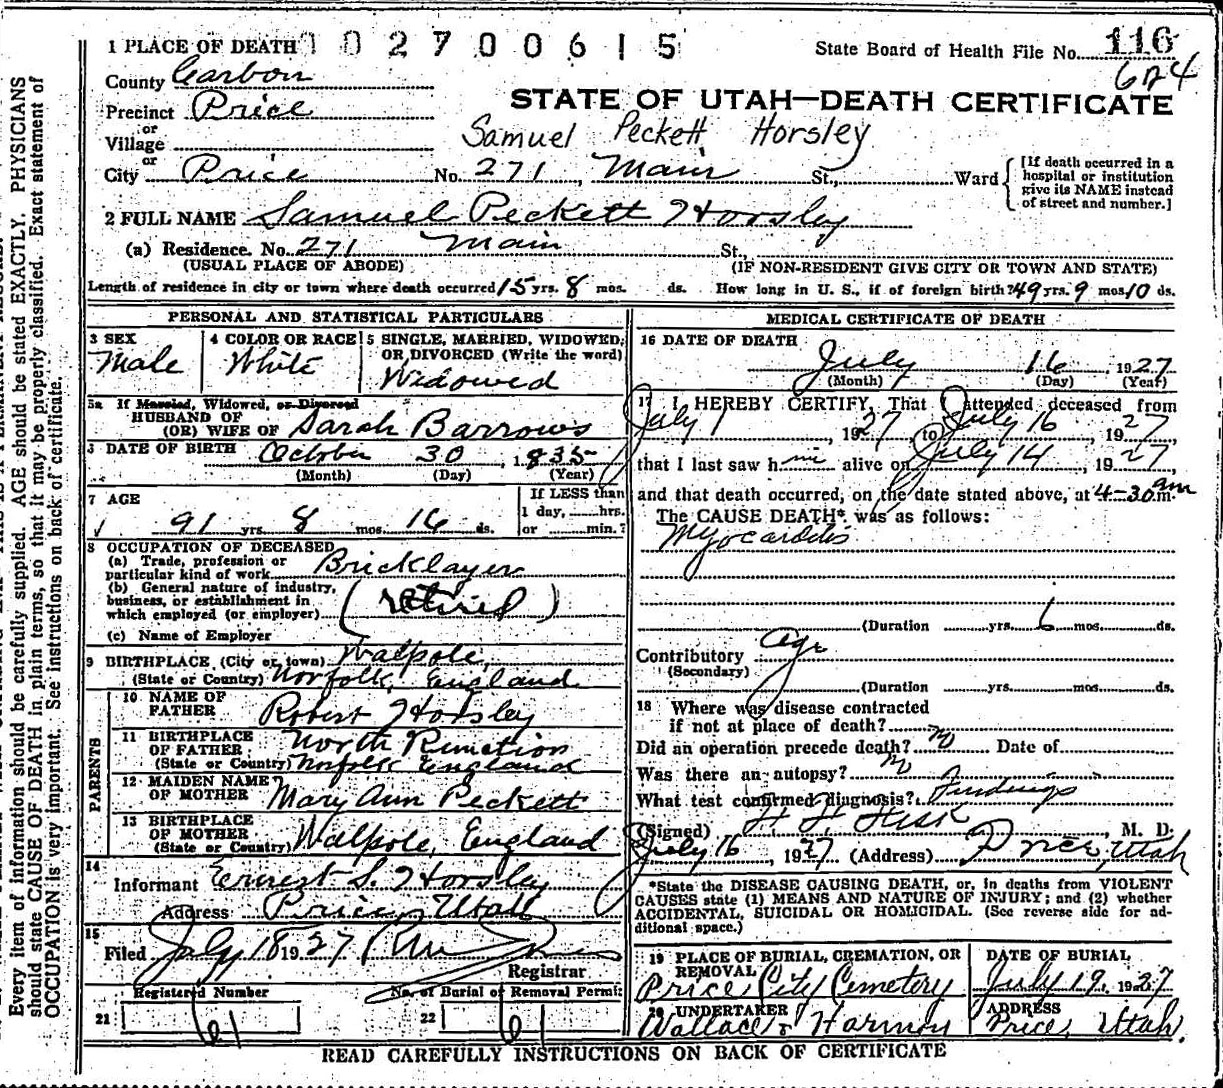 1 PLACE OF DEATH 1 0 2 7 0 0 6 1 5
State Board of Health File No. 116
624
County Carbon
Precinct Price
STATE OF UTAH—DEATH CERTIFICATE
or
Village
Samuel Peckett Horsley
or
City Price No. 271, Main St., Ward
[If death occurred in a hospital or institution give its NAME instead of street and number.]
2 FULL NAME Samuel Peckett Horsley
(a) Residence. No. 271 Main St.,
(USUAL PLACE OF ABODE) (IF NON-RESIDENT GIVE CITY OR TOWN AND STATE)
Length of residence in city or town where death occurred 15 yrs. 8 mos. ds. How long in U. S., if of foreign birth? 49 yrs. 9 mos. 10 ds.
PERSONAL AND STATISTICAL PARTICULARS
3 SEX
Male
4 COLOR OR RACE
White
5 SINGLE, MARRIED, WIDOWED,
OR DIVORCED (Write the word)
Widowed
5a If Married, Widowed, or Divorced
HUSBAND OF
(OR) WIFE OF Sarah Barrows
DATE OF BIRTH October 30, 1835
(Month) (Day) (Year)
7 AGE
91 yrs. 8 mos. 16 ds.
If LESS than
1 day, hrs.
or min.?
8 OCCUPATION OF DECEASED
(a) Trade, profession or
particular kind of work Bricklayer
(b) General nature of industry,
business, or establishment in
which employed (or employer) (retired)
(c) Name of Employer
9 BIRTHPLACE (City or town) Walpole,
(State or Country) Norfolk, England
PARENTS
10 NAME OF
FATHER Robert Horsley
11 BIRTHPLACE
OF FATHER North
(State or Country) Norfolk England
12 MAIDEN NAME
OF MOTHER Mary Ann Peckett
13 BIRTHPLACE
OF MOTHER
(State or Country) Walpole, England
14
Informant Ernest S. Horsley
Address Price, Utah
15
Filed July 18 1927
Registrar
Registered Number
21 61
No. of Burial or Removal Permit
22 61
MEDICAL CERTIFICATE OF DEATH
16 DATE OF DEATH
July 16, 1927
(Month) (Day) (Year)
17 I HEREBY CERTIFY, That I attended deceased from
July 1, 1927, to July 16, 1927,
that I last saw him alive on July 14, 1927,
and that death occurred, on the date stated above, at 4-30 am m.
The CAUSE DEATH* was as follows:
Myocarditis
(Duration yrs. 6 mos. ds.
Contributory Age
(Secondary)
(Duration yrs. mos. ds.
18 Where was disease contracted
if not at place of death?
Did an operation precede death? no Date of
Was there an autopsy? no
What test confirmed diagnosis? Findings
(Signed) , M. D.
July 16, 1927 (Address) Price, Utah
*State the DISEASE CAUSING DEATH, or, in deaths from VIOLENT
CAUSES state (1) MEANS AND NATURE OF INJURY; and (2) whether
ACCIDENTAL, SUICIDAL OR HOMICIDAL. (See reverse side for ad-
ditional space.)
19 PLACE OF BURIAL, CREMATION, OR
REMOVAL
Price City Cemetery
DATE OF BURIAL
July 19, 1927
20 UNDERTAKER
Wallace & Harmon
ADDRESS
Price, Utah.
READ CAREFULLY INSTRUCTIONS ON BACK OF CERTIFICATE
Every item of information should be carefully supplied. AGE should be stated EXACTLY. PHYSICIANS
should state CAUSE OF DEATH in plain terms, so that it may be properly classified. Exact statement of
OCCUPATION is very important. See instructions on back of certificate.